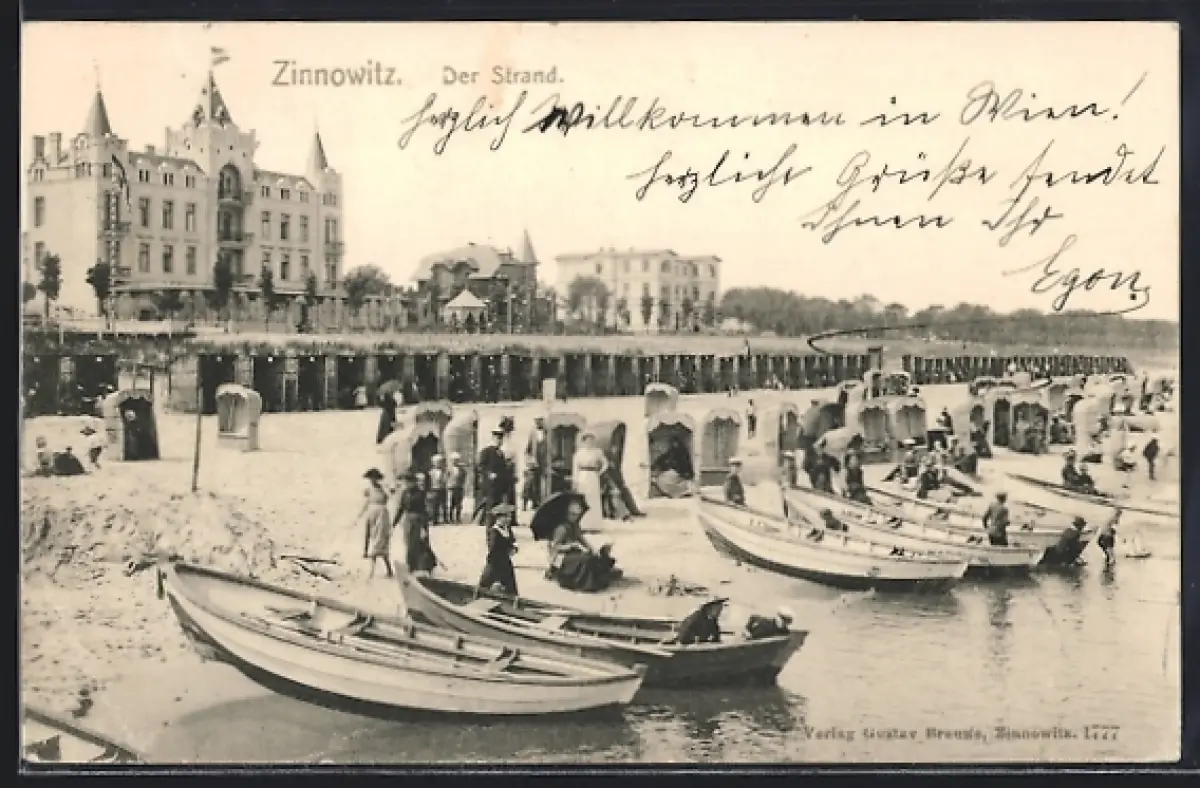 Zinnowitz. Der Strand.
herzlich Willkommen in Wien!
herzliche Grüße sendet
Ihnen Ihr
Egon.
Verlag Gustav Brouse, Zinnowitz. 1777